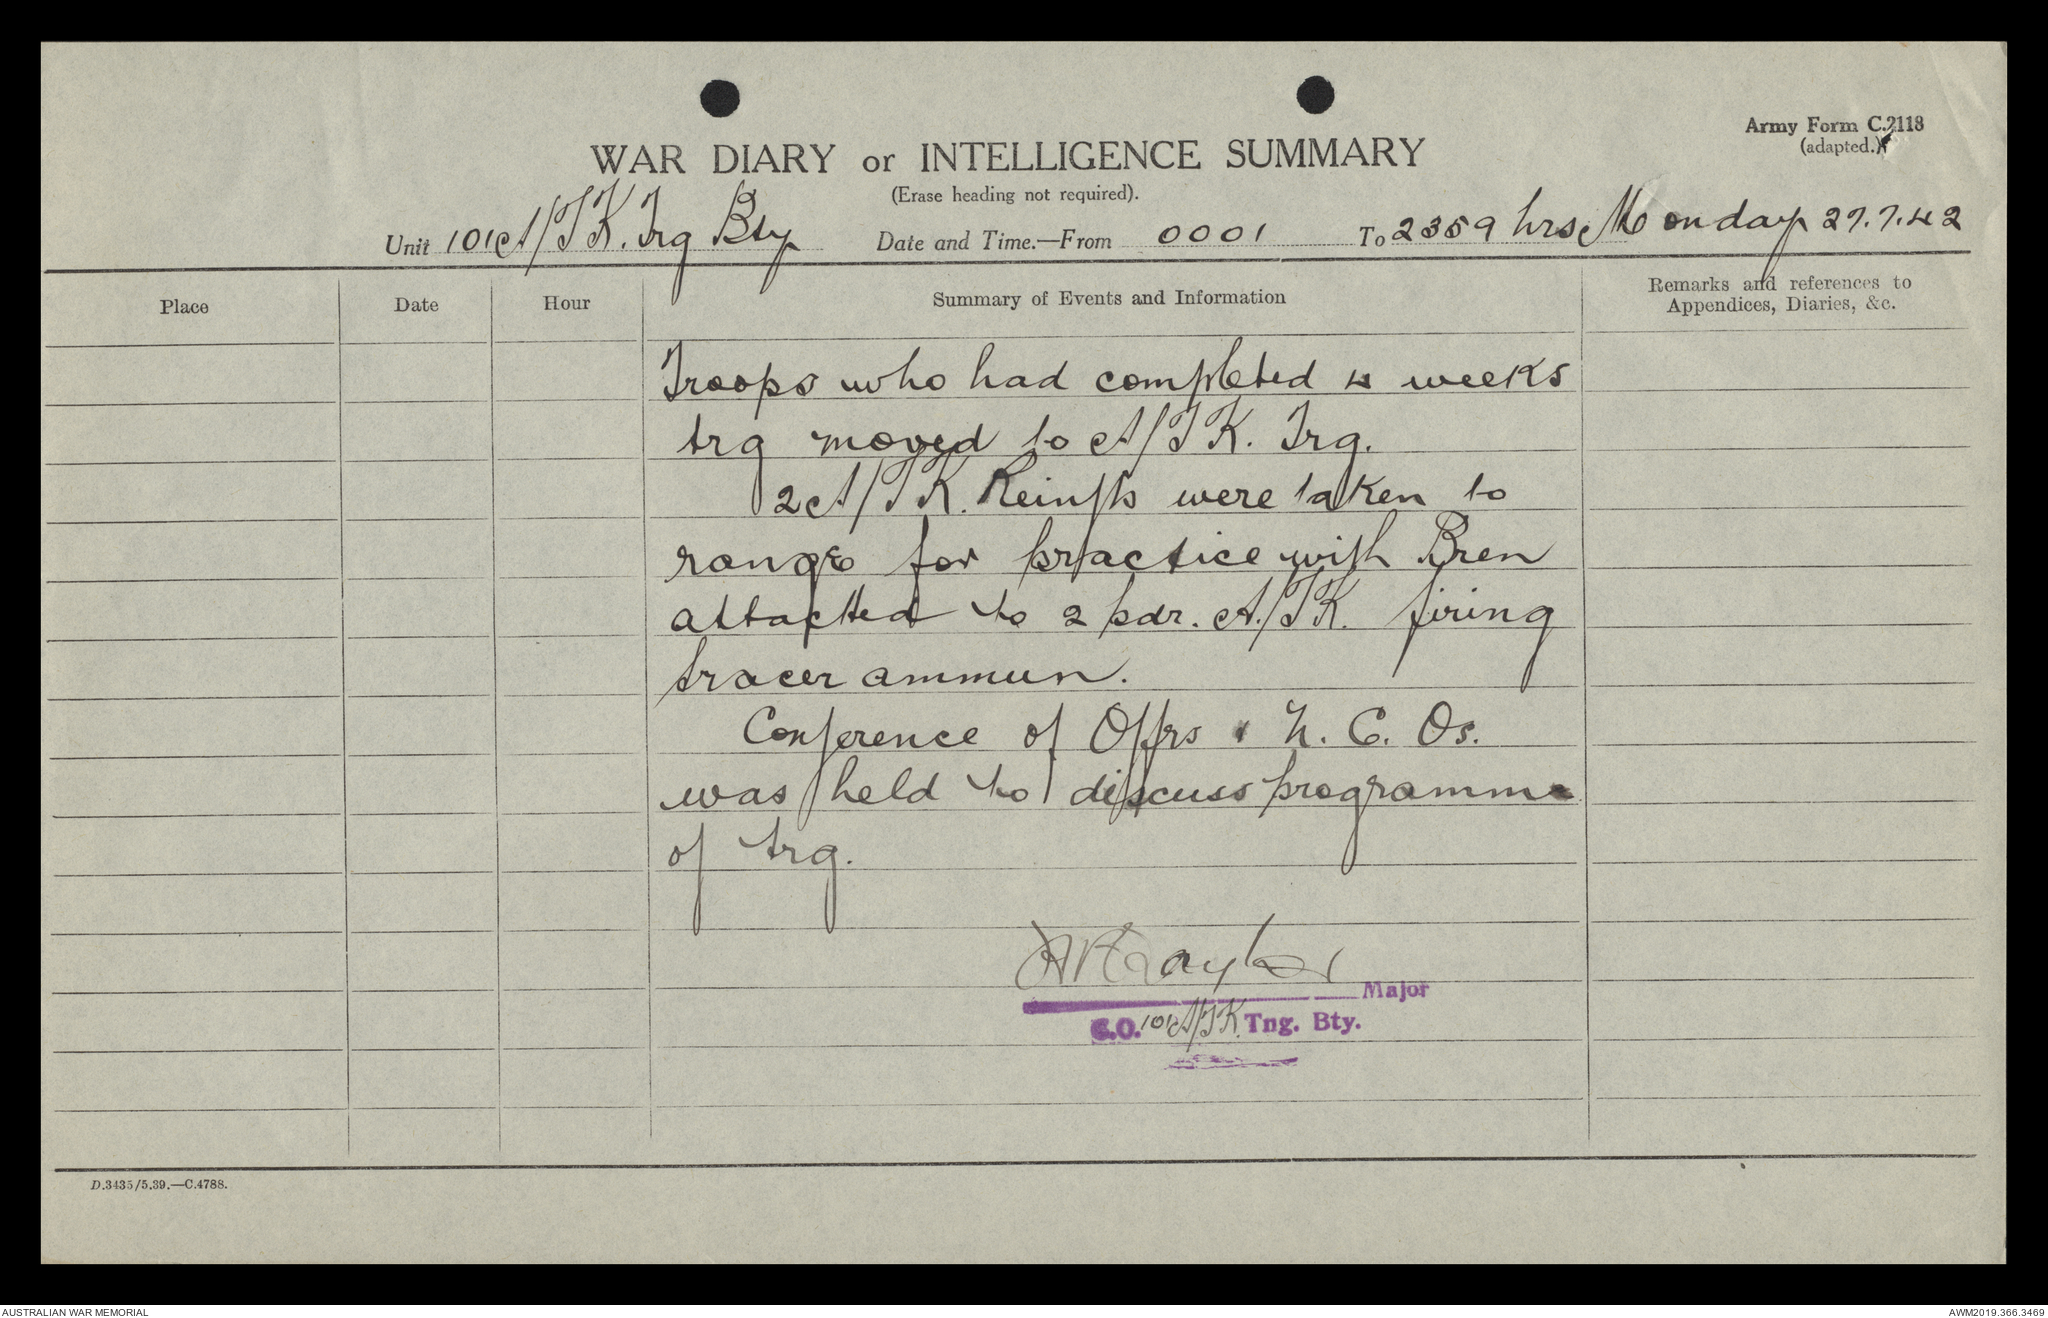 Army Form C.2118
(adapted.)
WAR DIARY or INTELLIGENCE SUMMARY
(Erase heading not required).
Unit 101 A/TK. Trg Bty Date and Time.—From 0001 To 2359 hrs Monday 27.7.42
Place Date Hour Summary of Events and Information Remarks and references to
Appendices, Diaries, &c.
Troops who had completed 4 weeks
trg moved to A/TK. Trg.
2 A/TK. Reinfts were taken to
range for practice with Bren
attached to 2 pdr. A/TK. firing
tracer ammun.
Conference of Offrs & N.C.Os.
was held to discuss programme
of trg.
Taylor
Major
C.O. 101 A/TK. Tng. Bty.
D.3435/5.39.—C.4788.
AUSTRALIAN WAR MEMORIAL
AWM2019.366.3469